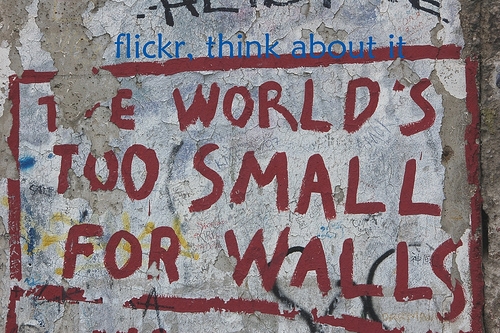 flickr, think about it
THE WORLD'S
TOO SMALL
FOR WALLS